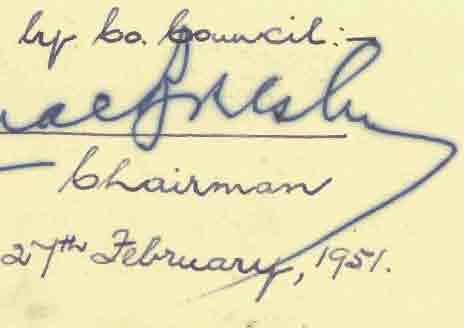 by Co. Council:-
Chairman
27th February, 1951.